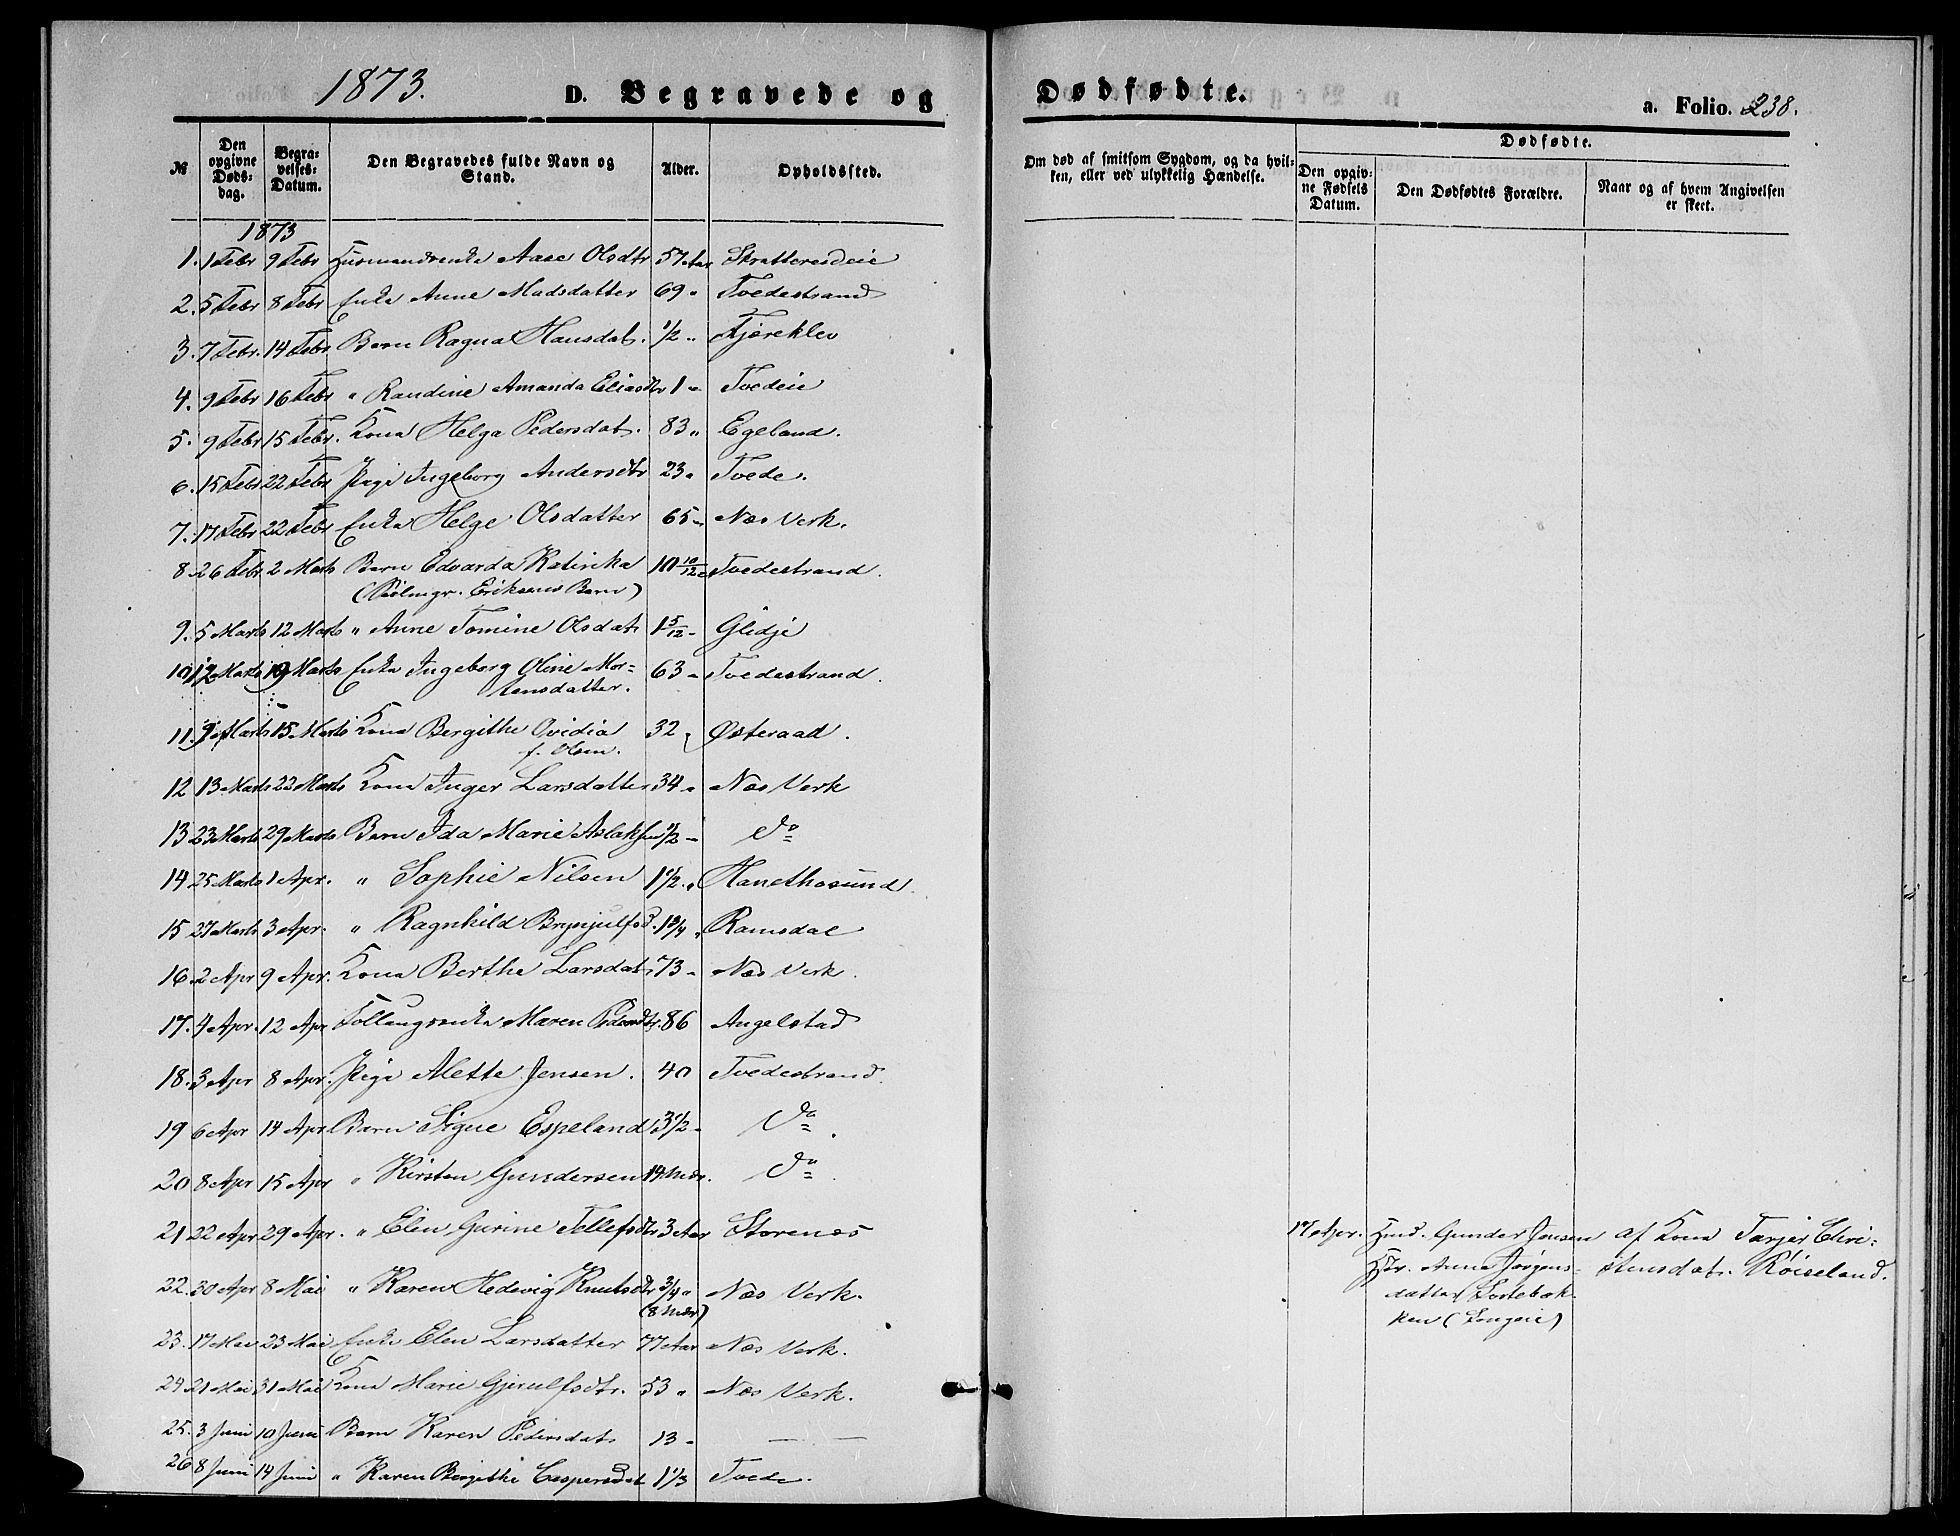 1873.
D. Begravede og
Dødfødte.
a. Folio. 238.
№
Den opgivne Døds-dag.
Begra-velses-Datum.
Den Begravedes fulde Navn og Stand.
Alder.
Opholdssted.
Om død af smitsom Sygdom, og da hvil-ken, eller ved ulykkelig Hændelse.
Dødfødte.
Den opgiv-ne Fødsels Datum.
Den Dødfødtes Forældre.
Naar og af hvem Angivelsen er skeet.
1873
1. 1 Febr 9 Febr Husmandsenke Aase Olsdtr 57 Aar Skratteresdeie
2. 5 Febr 8 Febr Enke Anne Madsdatter 69 " Tvedestrand
3. 7 Febr. 14 Febr Barn Ragna Hansdat. 1/2 " Fjæreklev
4. 9 Febr 16 Febr " Randine Amanda Eliasdtr 1 " Tvedeie
5. 9 Febr 15 Febr. Kona Helga Pedersdat. 83 " Egeland.
6. 15 Febr 22 Febr Pige Ingeborg Andersdtr 23 " Tvede.
7. 17 Febr 22 Febr Enke Helge Olsdatter 65 " Næs Verk.
8. 26 Febr 2 Marts Barn Edvarda Katinka 10 10/12 Tvedestrand.
Eriksens Barn)
9. 5 Marts 12 Marts " Anne Tomine Olsdat. 1 5/12 " Glidje
10 12 Marts 19 Marts Enke Ingeborg Oline Mor-
tensdatter. 63 " Tvedestrand.
11. 9 Marts 15 Marts Kona Bergithe Ovidia
f. Olsen. 32 " Østeraad.
12 13 Marts 22 Marts Kona Inger Larsdatter 34 " Næs Verk
13 23 Marts 29 Marts Barn Ida Marie Aslaksen 1/2 " do
14 25 Marts 1 Apr. " Sophie Nilsen 1 1/2 " Hanethosund.
15 27 Marts 3 Apr. " Ragnhild Brynjulfsd. 1 3/4 " Ramsdal
16. 2 Apr 9 Apr. Kona Berthe Larsdat. 73 " Næs Verk.
17. 4 Apr. 12 Apr Maren Pedersdtr. 86 Angelstad
18. 3 Apr 8 Apr. Pige Alette Jensen. 40 Tvedestrand.
19 6 Apr 14 Apr Barn Signe Espeland 3 1/2 " do
20 8 Apr 15 Apr " Kirsten Gundersen 14 Mdr. do
21 22 Apr 29 Apr. " Elen Gurine Tellefsdtr 3 Aar Storenæs
22. 30 Apr 8 Mai " Karen Hedevig Knutsdtr 3/4 " Næs Verk.
(8 Mdr)
23. 17 Mai 23 Mai Enke Elen Larsdatter 77 Aar Næs Verk.
24 21 Mai 31 Mai Kona Marie Gjerulfsdtr. 53 " Næs Verk.
25. 3 Juni 10 Juni Barn Karen Pedersdat. 13 " — —
26 8 Juni 14 Juni " Karen Bergithe Caspersdat 1 1/3 Tvede.
17 Apr. Hmd. Gunder Jensen af Kona Tarjer Chri-
Anne Jørgens- stensdat. Röiseland.
datter
ken